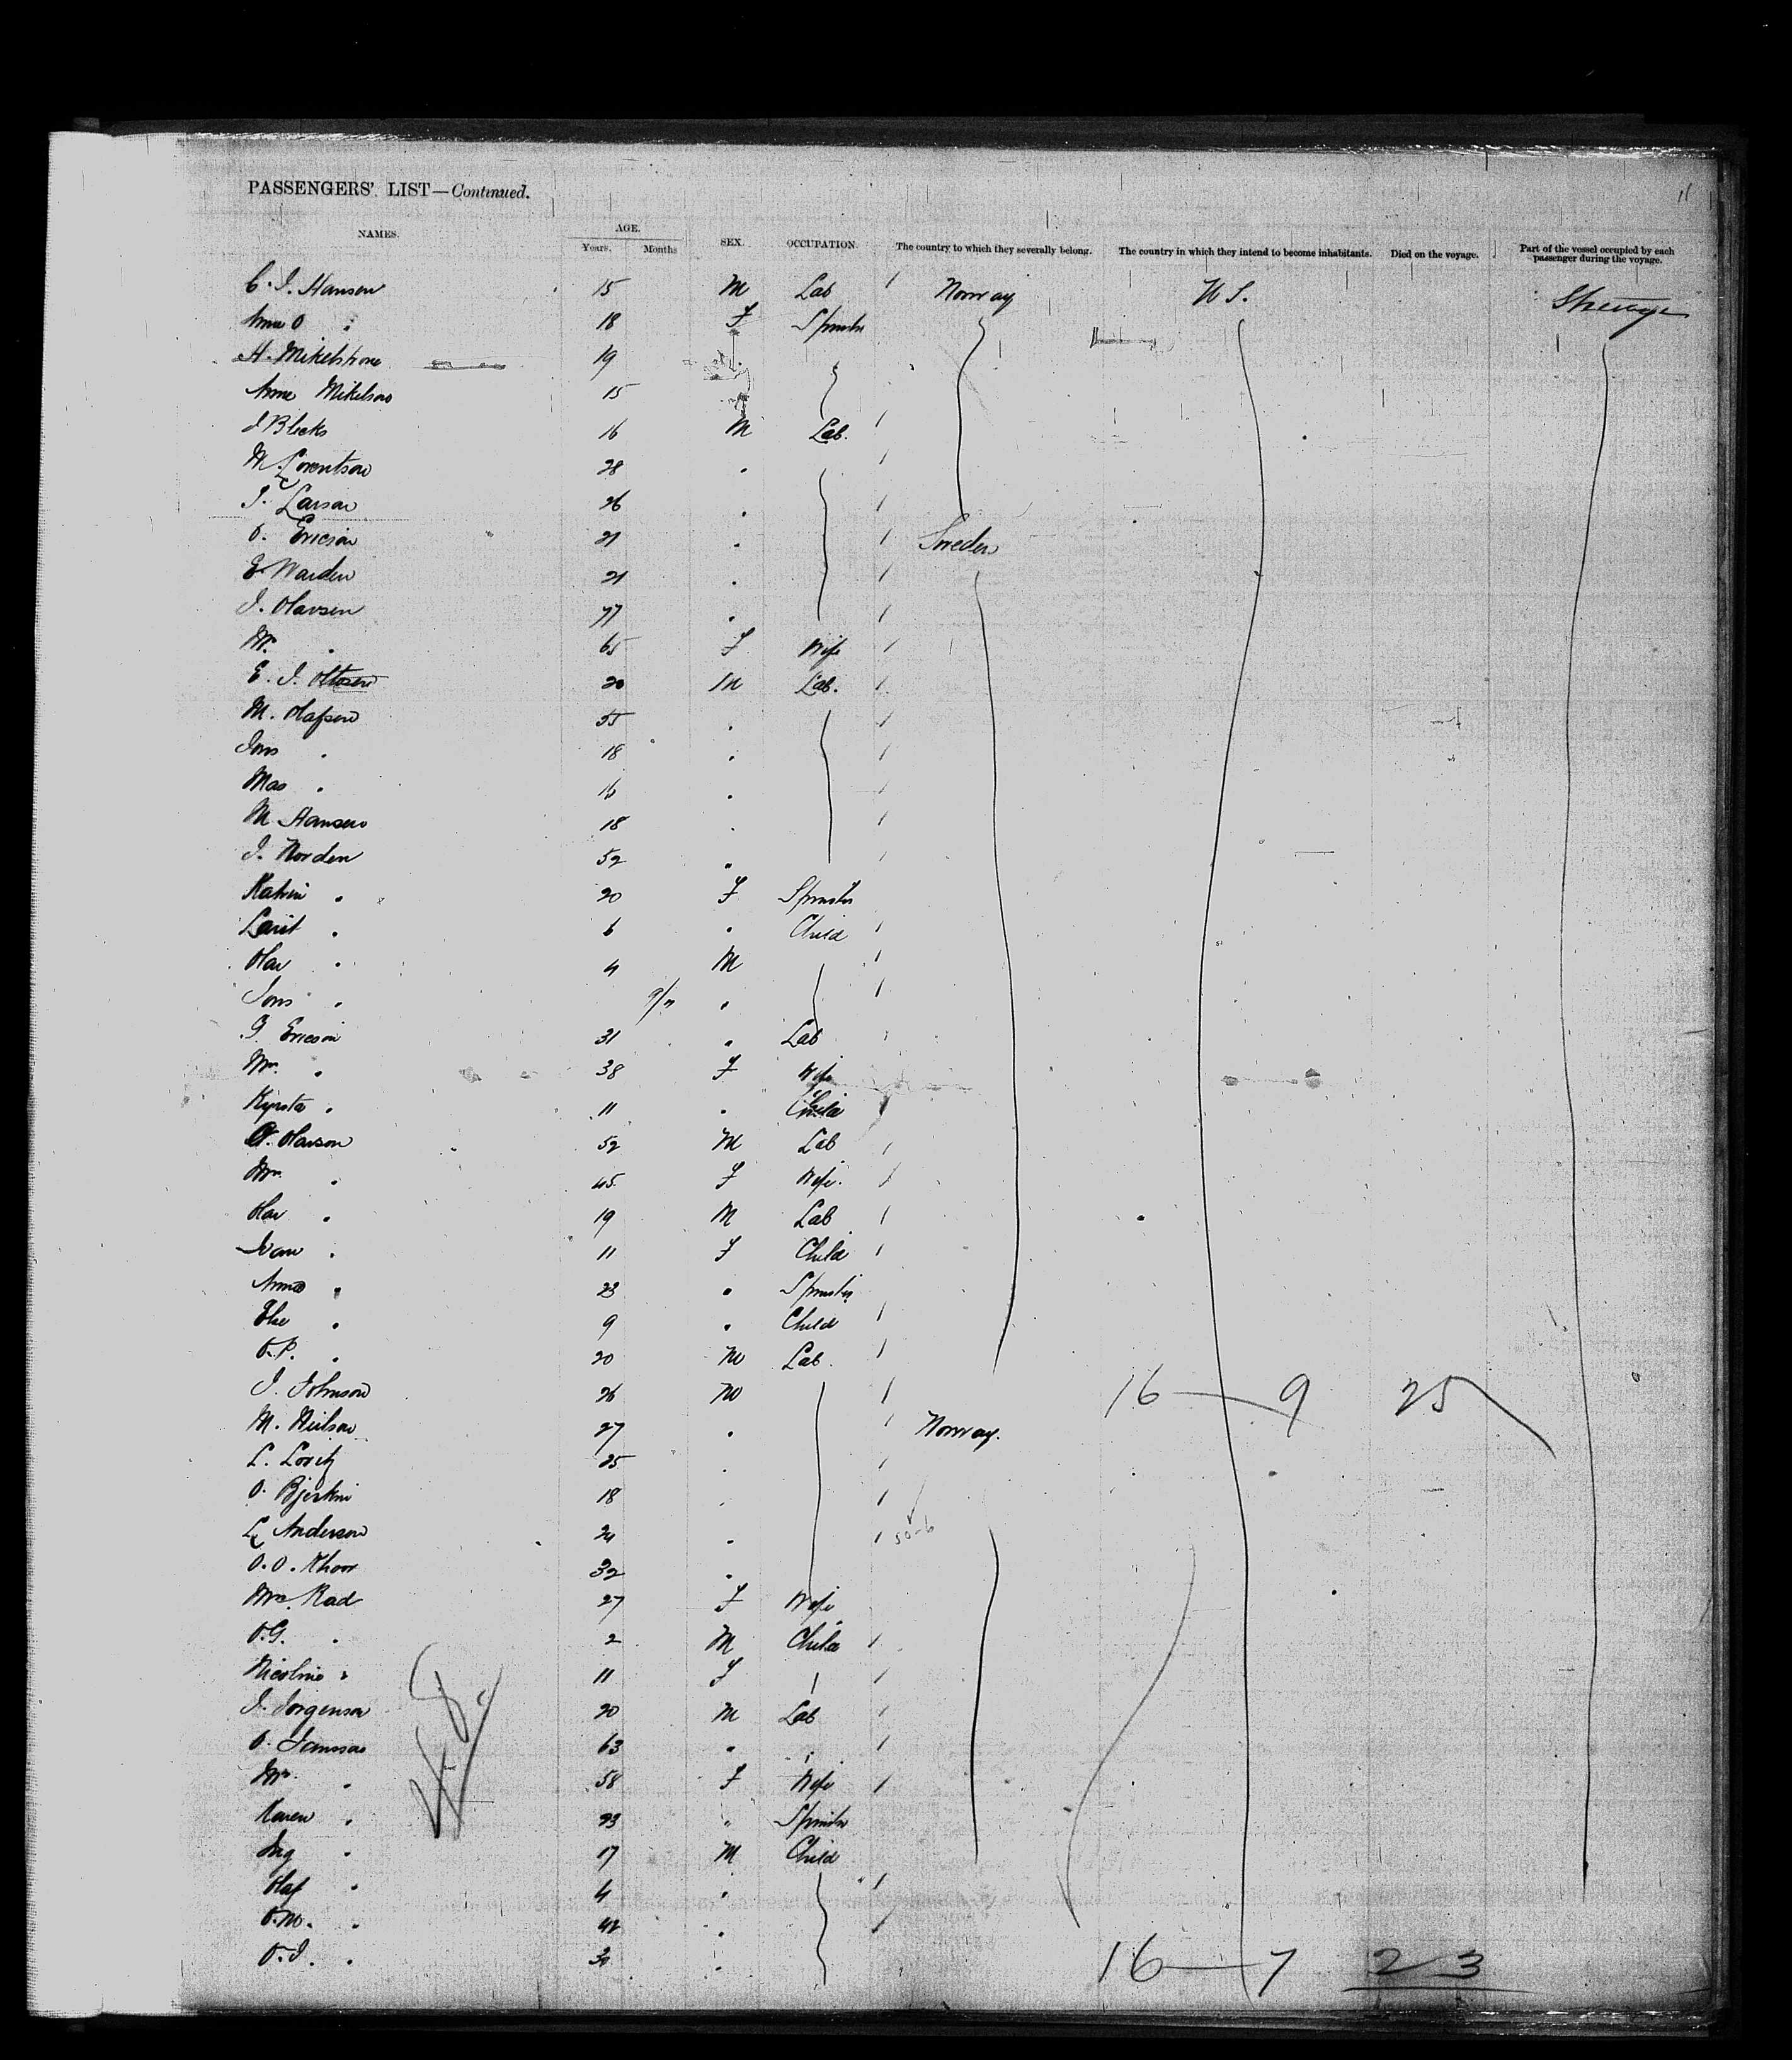 11
PASSENGERS' LIST—Continued.
NAMES. AGE. SEX. OCCUPATION. The country to which they severally belong. The country in which they intend to become inhabitants. Died on the voyage. Part of the vessel occupied by each passenger during the voyage.
Years. Months
C. J. Hansen 15 M Lab Norway U S. Steerage
Anne O " 18 F Spinster
A. 19
Anne Mikelson 15
16 M Lab.
M. Lorentson 28 "
J. Larson 26 "
O. Ericson 21 " Sweden
E Warden 21 "
J. Olavsen 77 "
Mrs. " 65 F Wife
E. J. 20 M Lab.
M. Olafsen 55 "
Jons " 18 "
Mas " 16 "
M Hansen 18 "
J. Norden 52 "
Katrin " 20 F Spinster
" 6 " Child
Olav " 4 M
Jons " 9/m "
G. Ericson 31 " Lab
Mrs. " 38 F Wife
" 11 " Child
Olavson 52 M Lab
Mrs. " 45 F Wife.
Olav " 19 M Lab
" 11 F Child
Anna " 23 " Spinster
Else " 9 " Child
O.P. " 20 M Lab.
J. Johnson 26 M 16 — 9 25
M. Neilson 27 " Norway.
L. 25 "
O. 18 "
L. Anderson 24 "
O. O. 32 "
Mrs. Rad 27 F Wife
O.G. " 2 M Child
Nicoline " 11 F
J. Jorgenson 20 M Lab
O. 63 " "
Mrs. " 58 F Wife
Karen " 23 " Spinster
" 17 M Child
Olaf " 4 "
O.M. " "
O.J. " "
16 — 7 23
48